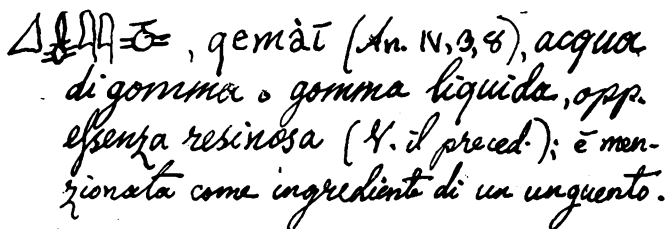 , qemàï (An. IV, 3, 8), acqua
di gomma o gomma liquida, opp.
essenza resinosa (V. il preced.); è men-
zionata come ingrediente di un unguento.